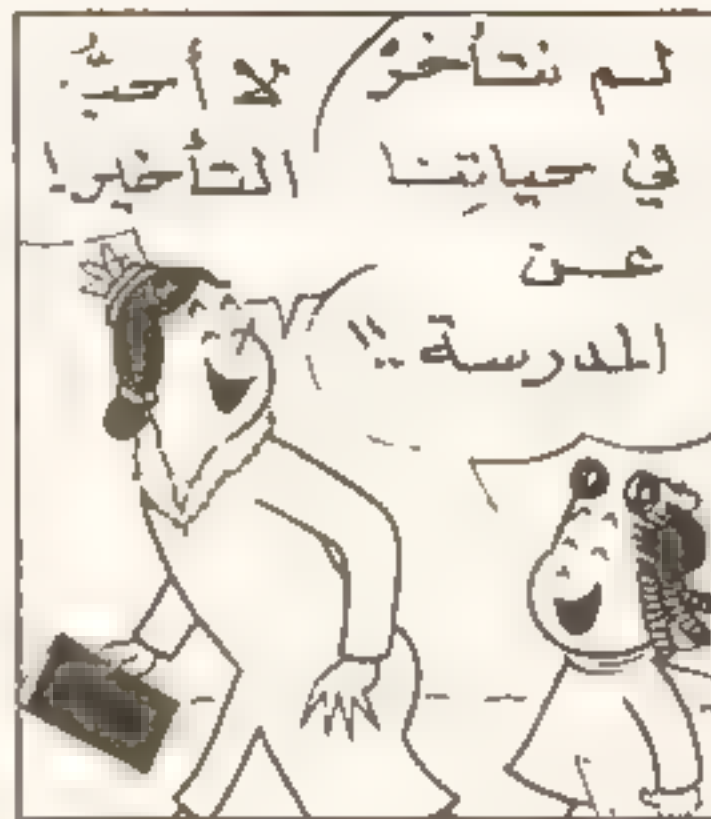 لم نتأخرْ
في حياتِنا
عن
المدرسة !!
لا أحبُّ
التأخير!